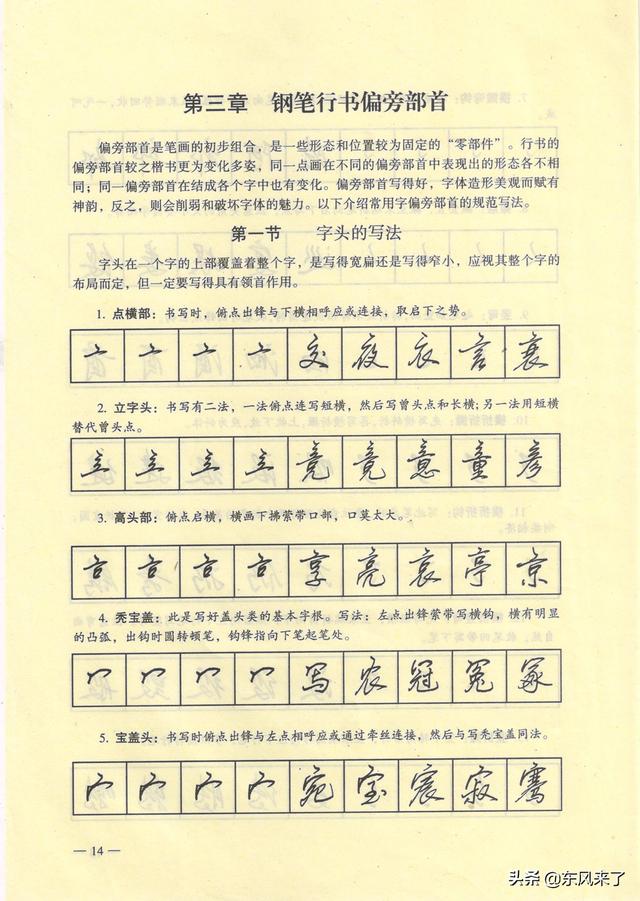 第三章 钢笔行书偏旁部首
偏旁部首是笔画的初步组合，是一些形态和位置较为固定的“零部件”。行书的
偏旁部首较之楷书更为变化多姿，同一点画在不同的偏旁部首中表现出的形态各不相
同；同一偏旁部首在结成各个字中也有变化。偏旁部首写得好，字体造形美观而赋有
神韵，反之，则会削弱和破坏字体的魅力。以下介绍常用字偏旁部首的规范写法。
第一节 字头的写法
字头在一个字的上部覆盖着整个字，是写得宽扁还是写得窄小，应视其整个字的
布局而定，但一定要写得具有领首作用。
1. 点横部：书写时，俯点出锋与下横相呼应或连接，取启下之势。
亠 亠 亠 亠 交 夜 衣 言 衰
2. 立字头：书写有二法，一法俯点连写短横，然后写曾头点和长横；另一法用短横
替代曾头点。
立 立 立 立 竟 竞 意 童 彦
3. 高头部：俯点启横，横画下拂萦带口部，口莫太大。
享 亮 哀 亭 京
4. 秃宝盖：此是写好盖头类的基本字根。写法：左点出锋萦带写横钩，横有明显
的凸弧，出钩时圆转顿笔，钩锋指向下笔起笔处。
冖 冖 冖 冖 写 农 冠 冤 冢
5. 宝盖头：书写时俯点出锋与左点相呼应或通过牵丝连接，然后与写秃宝盖同法。
宀 宀 宀 宀 宛 宝 宸 寂 骞
— 14 —
头条 @东风来了